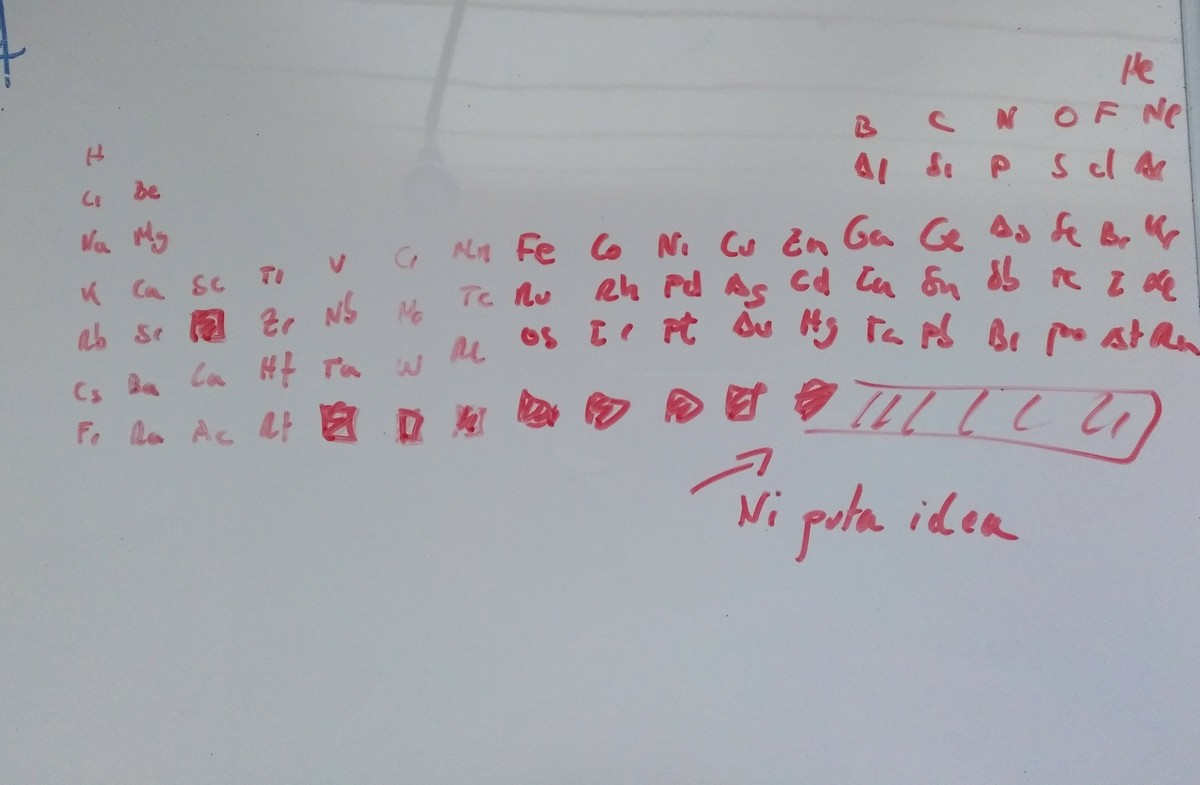 He
B C N O F Ne
H
Al Si P S Cl Ar
Li Be
Na Mg
K Ca Sc Ti V Cr Mn Fe Co Ni Cu Zn Ga Ge As Se Br Kr
Rb Sr Zr Nb Mo Tc Ru Rh Pd Ag Cd In Sn Sb Te I Xe
Cs Ba La Hf Ta W Re Os Ir Pt Au Hg Ta Pb Bi Po At Rn
Fr Ra Ac Rf
Ni puta idea